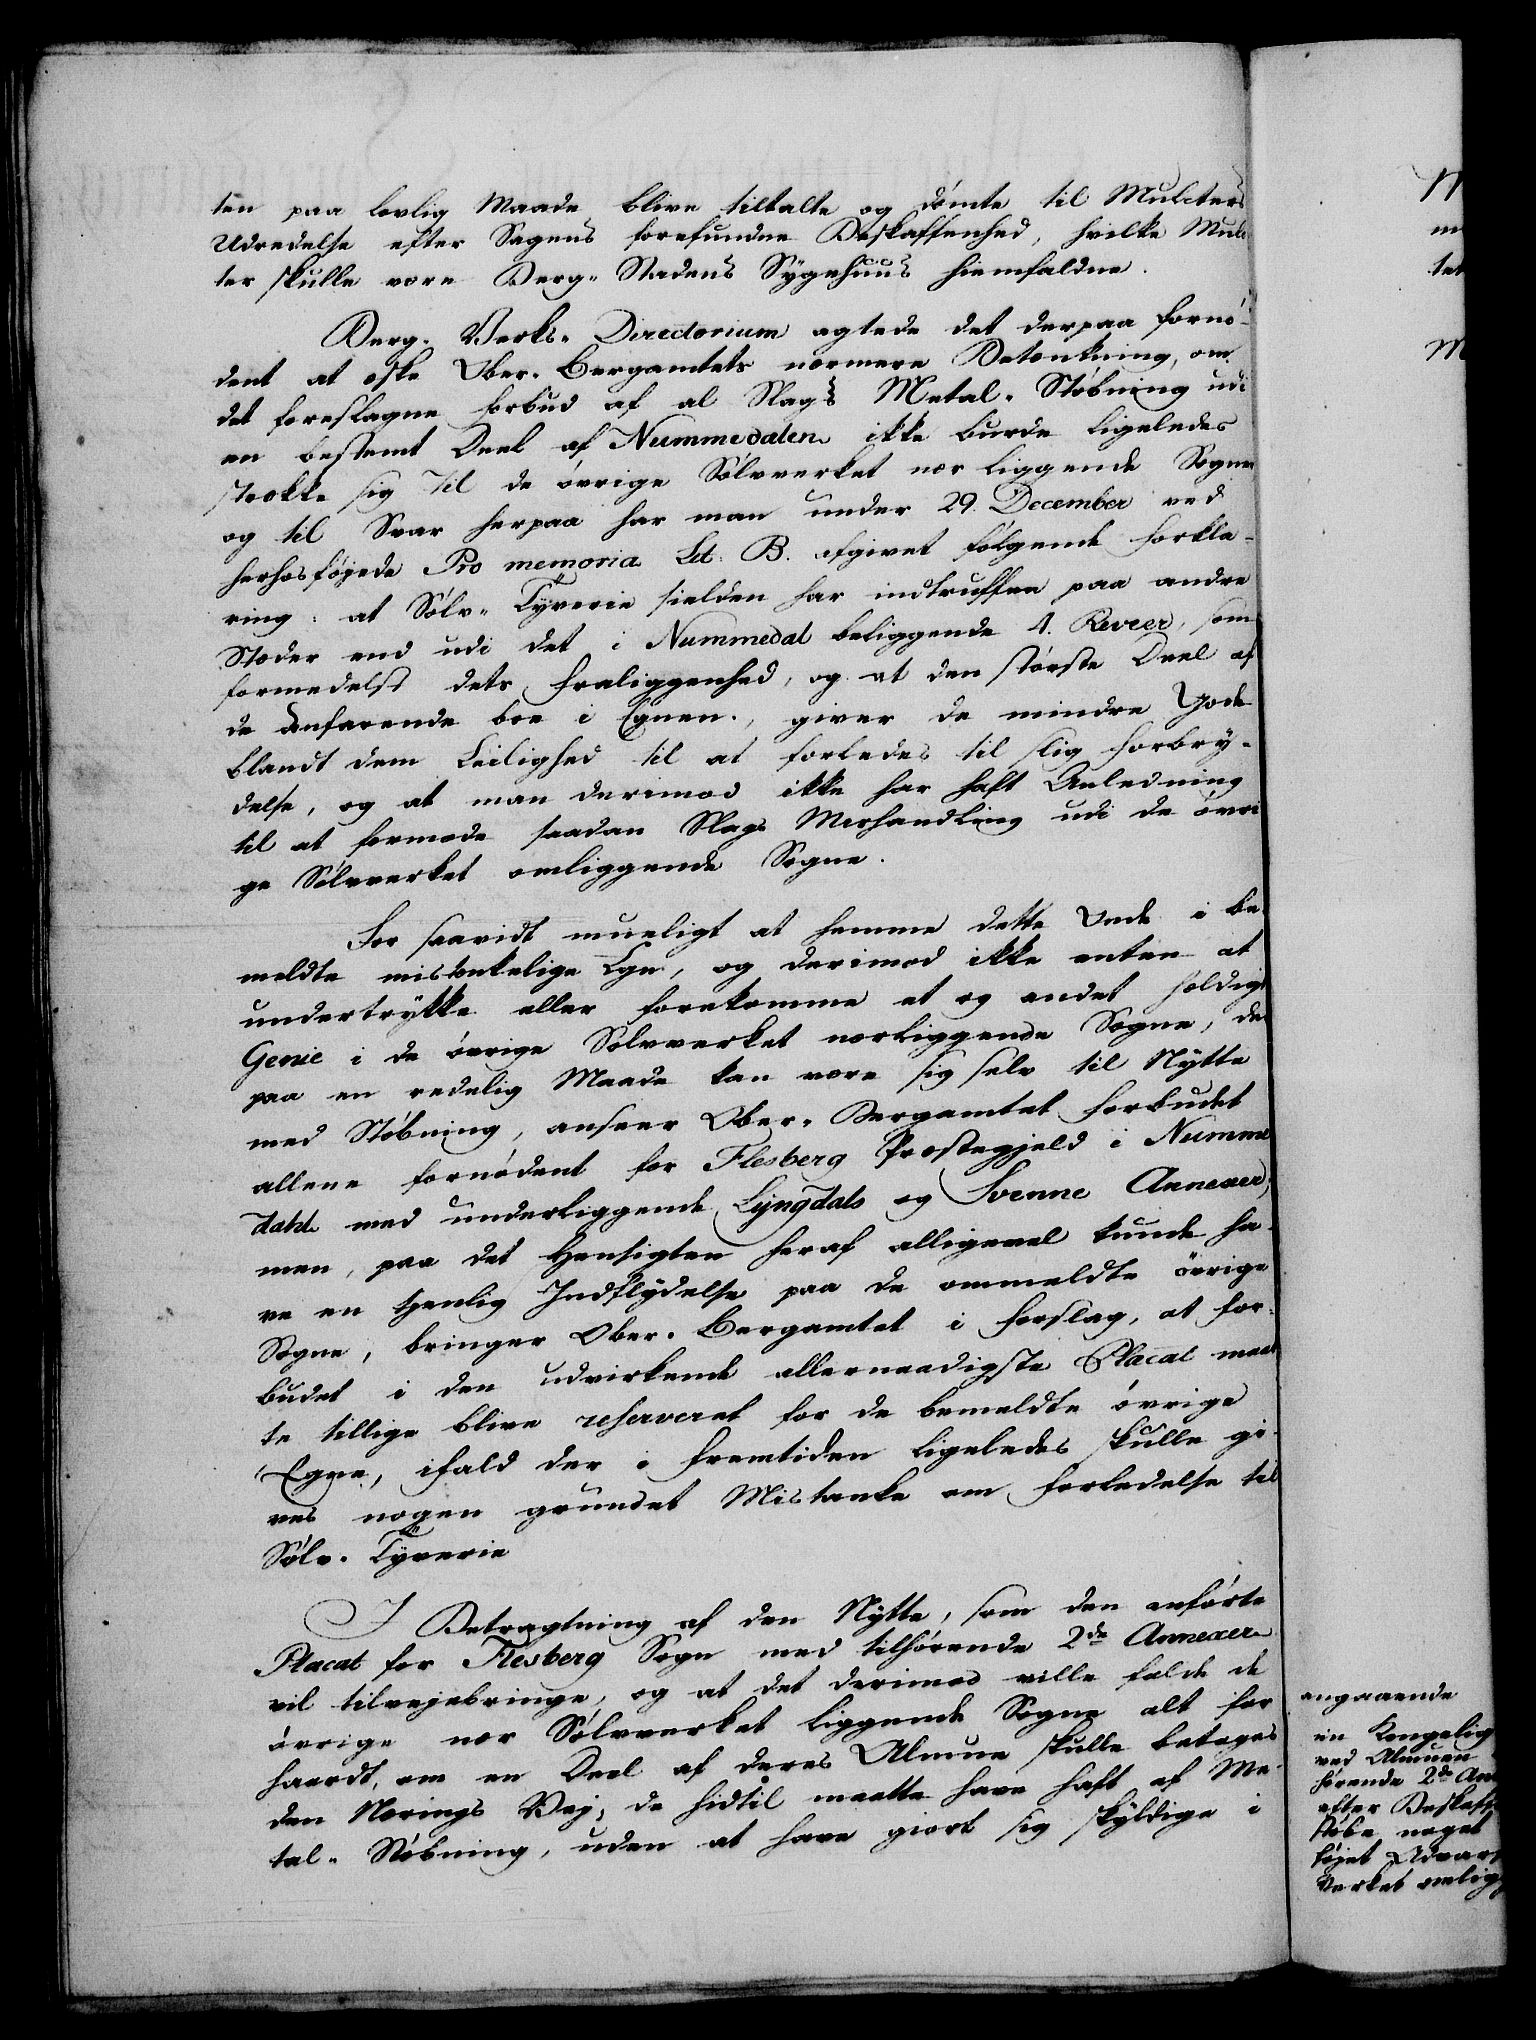 ten paa lovlig Maade blive tiltalte og dömte til Mulcters
Udredelse efter Sagens forefundne Beskaffenhed, hvilke Mulc
ter skulle være Berg-Stadens Sygehuus hiemfaldne.
Berg-Verks-Directorium agtede det derpaa fornö-
dent at æske Ober-Bergamtets nærmere Betænkning, om
det foreslagne Forbud af al Slags Metal-Stöbning udi
en bestemt Deel af Nummedalen ikke burde ligeledes
strække sig til de övrige Sölvverket nær liggende Sogne
og til Svar herpaa har man under 29. December ved
herhosföyede Pro memoria Lit: B. afgivet fölgende Forkla-
ring: at Sölv-Tyverie sielden har indtruffen paa andre
Stæder end udi det i Nummedal beliggende 4. Reveer, som
formedelst dets Fraliggenhed, og at den störste Deel af
de Anfarende boe i Egnen, giver de mindre Gode
blandt dem Leilighed til at forledes til slig Forbry-
delse, og at man derimod ikke har haft Anledning
til at formode saadan Slags Mishandling udi de övri
ge Sölvverket omliggende Sogne.
For saavidt mueligt at hemme dette Onde i be-
meldte mistænkelige Egn, og derimod ikke enten at
undertrykke eller forekomme et og andet heldigt
Genie i de övrige Sölvverket nærliggende Sogne, der
paa en redelig Maade kan være sig selv til Nytte
med Stöbning, anseer Ober-Bergamtet Forbudet
allene fornödent for Flesberg Præstegjeld i Numme
dahl med underliggende Lyngdals og Svenne Annexer,
men, paa det Hensigten heraf alligevel kunde ha-
ve en tjenlig Indflydelse paa de ommeldte övrige
Sogne, bringer Ober-Bergamtet i Forslag, at For-
budet i den udvirkende allernaadigste Placat maat
te tillige blive reserveret for de bemeldte övrige
Egne, ifald der i Fremtiden ligeledes skulle gi-
ves nogen grundet Mistanke om Forledelse til
Sölv-Tyverie
I Betragtning af den Nytte, som den anförte
Placat for Flesberg Sogn med tilhörende 2de Annexer
vil tilvejebringe, og at det derimod ville falde de
övrige nær Sölvverket liggende Sogne alt for
haardt, om en Deel af deres Almue skulle betages
den Nærings Vej, de hidtil maatte have haft af Me-
tal-Stöbning, uden at have giort sig skyldige i
angaaende
en Kongelig
ved Almuen
hörende 2de An
efter Beskaf
stöbe noget
föjet Advar
Verket omlig